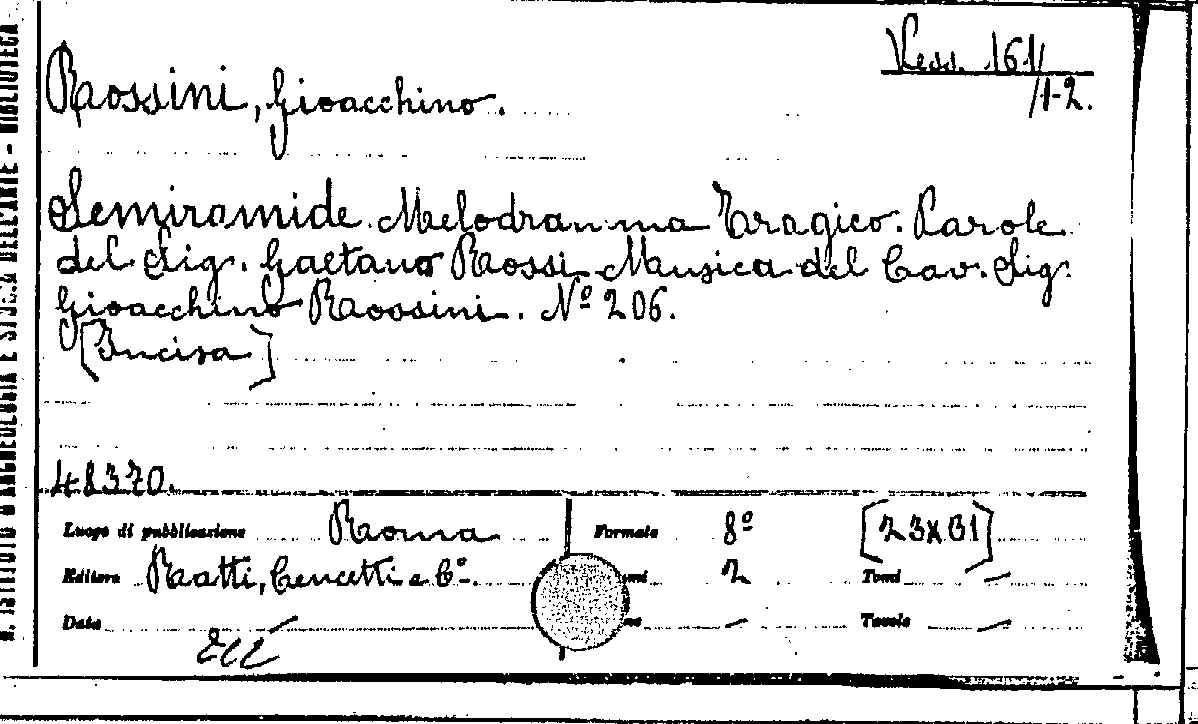 R. ISTITUTO D'ARCHEOLOGIA E STORIA DELL'ARTE - BIBLIOTECA
Vess. 161/
/1-2.
Rossini, Gioacchino.
Semiramide. Melodramma Tragico. Parole
del Sig. Gaetano Rossi. Musica del Cav. Sig.
Gioacchino Rossini. Nº 206.
[Incisa]
48370.
Luogo di pubblicazione Roma Formato 8º [23X31]
Editore Ratti, Cencetti e Cº. 2 Tomi —
Data — Tavole —